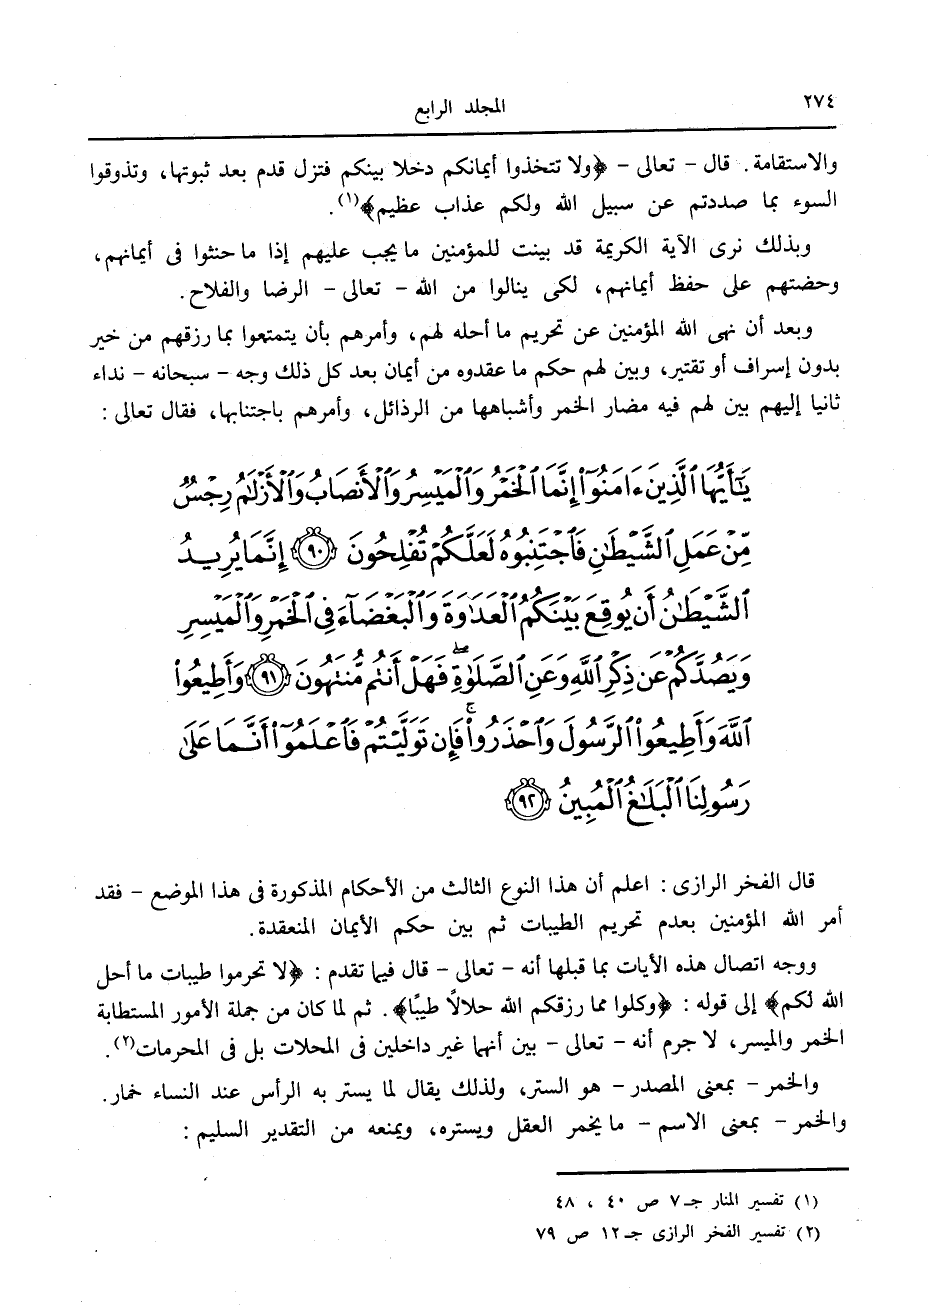 ٢٧٤
المجلد الرابع
والاستقامة. قال - تعالى - ﴿ولا تتخذوا أيمانكم دخلا بينكم فتزل قدم بعد ثبوتها، وتذوقوا
السوء بما صددتم عن سبيل الله ولكم عذاب عظيم﴾(١).
وبذلك نرى الآية الكريمة قد بينت للمؤمنين ما يجب عليهم إذا ما حنثوا فى أيمانهم،
وحضتهم على حفظ أيمانهم، لكى ينالوا من الله - تعالى - الرضا والفلاح.
وبعد أن نهى الله المؤمنين عن تحريم ما أحله لهم، وأمرهم بأن يتمتعوا بما رزقهم من خير
بدون إسراف أو تقتير، وبين لهم حكم ما عقدوه من أيمان بعد كل ذلك وجه - سبحانه - نداء
ثانيا إليهم بين لهم فيه مضار الخمر وأشباهها من الرذائل، وأمرهم باجتنابها، فقال تعالى :
يَٰٓأَيُّهَا ٱلَّذِينَ ءَامَنُوٓا۟ إِنَّمَا ٱلْخَمْرُ وَٱلْمَيْسِرُ وَٱلْأَنصَابُ وَٱلْأَزْلَٰمُ رِجْسٌ
مِّنْ عَمَلِ ٱلشَّيْطَٰنِ فَٱجْتَنِبُوهُ لَعَلَّكُمْ تُفْلِحُونَ ﴿٩٠﴾ إِنَّمَا يُرِيدُ
ٱلشَّيْطَٰنُ أَن يُوقِعَ بَيْنَكُمُ ٱلْعَدَٰوَةَ وَٱلْبَغْضَآءَ فِى ٱلْخَمْرِ وَٱلْمَيْسِرِ
وَيَصُدَّكُمْ عَن ذِكْرِ ٱللَّهِ وَعَنِ ٱلصَّلَوٰةِ ۖ فَهَلْ أَنتُم مُّنتَهُونَ ﴿٩١﴾ وَأَطِيعُوا۟
ٱللَّهَ وَأَطِيعُوا۟ ٱلرَّسُولَ وَٱحْذَرُوا۟ ۚ فَإِن تَوَلَّيْتُمْ فَٱعْلَمُوٓا۟ أَنَّمَا عَلَىٰ
رَسُولِنَا ٱلْبَلَٰغُ ٱلْمُبِينُ ﴿٩٢﴾
قال الفخر الرازى : اعلم أن هذا النوع الثالث من الأحكام المذكورة فى هذا الموضع - فقد
أمر الله المؤمنين بعدم تحريم الطيبات ثم بين حكم الأيمان المنعقدة.
ووجه اتصال هذه الأيات بما قبلها أنه - تعالى - قال فيما تقدم : ﴿لا تحرموا طيبات ما أحل
الله لكم﴾ إلى قوله : ﴿وكلوا مما رزقكم الله حلالاً طيبًا﴾. ثم لما كان من جملة الأمور المستطابة
الخمر والميسر، لا جرم أنه - تعالى - بين أنهما غير داخلين فى المحلات بل فى المحرمات(٢).
والخمر - بمعنى المصدر - هو الستر، ولذلك يقال لما يستر به الرأس عند النساء خمار.
والخمر - بمعنى الاسم - ما يخمر العقل ويستره، ويمنعه من التقدير السليم :
(١) تفسير المنار جـ٧ ص ٤٠ ، ٤٨
(٢) تفسير الفخر الرازى جـ١٢ ص ٧٩